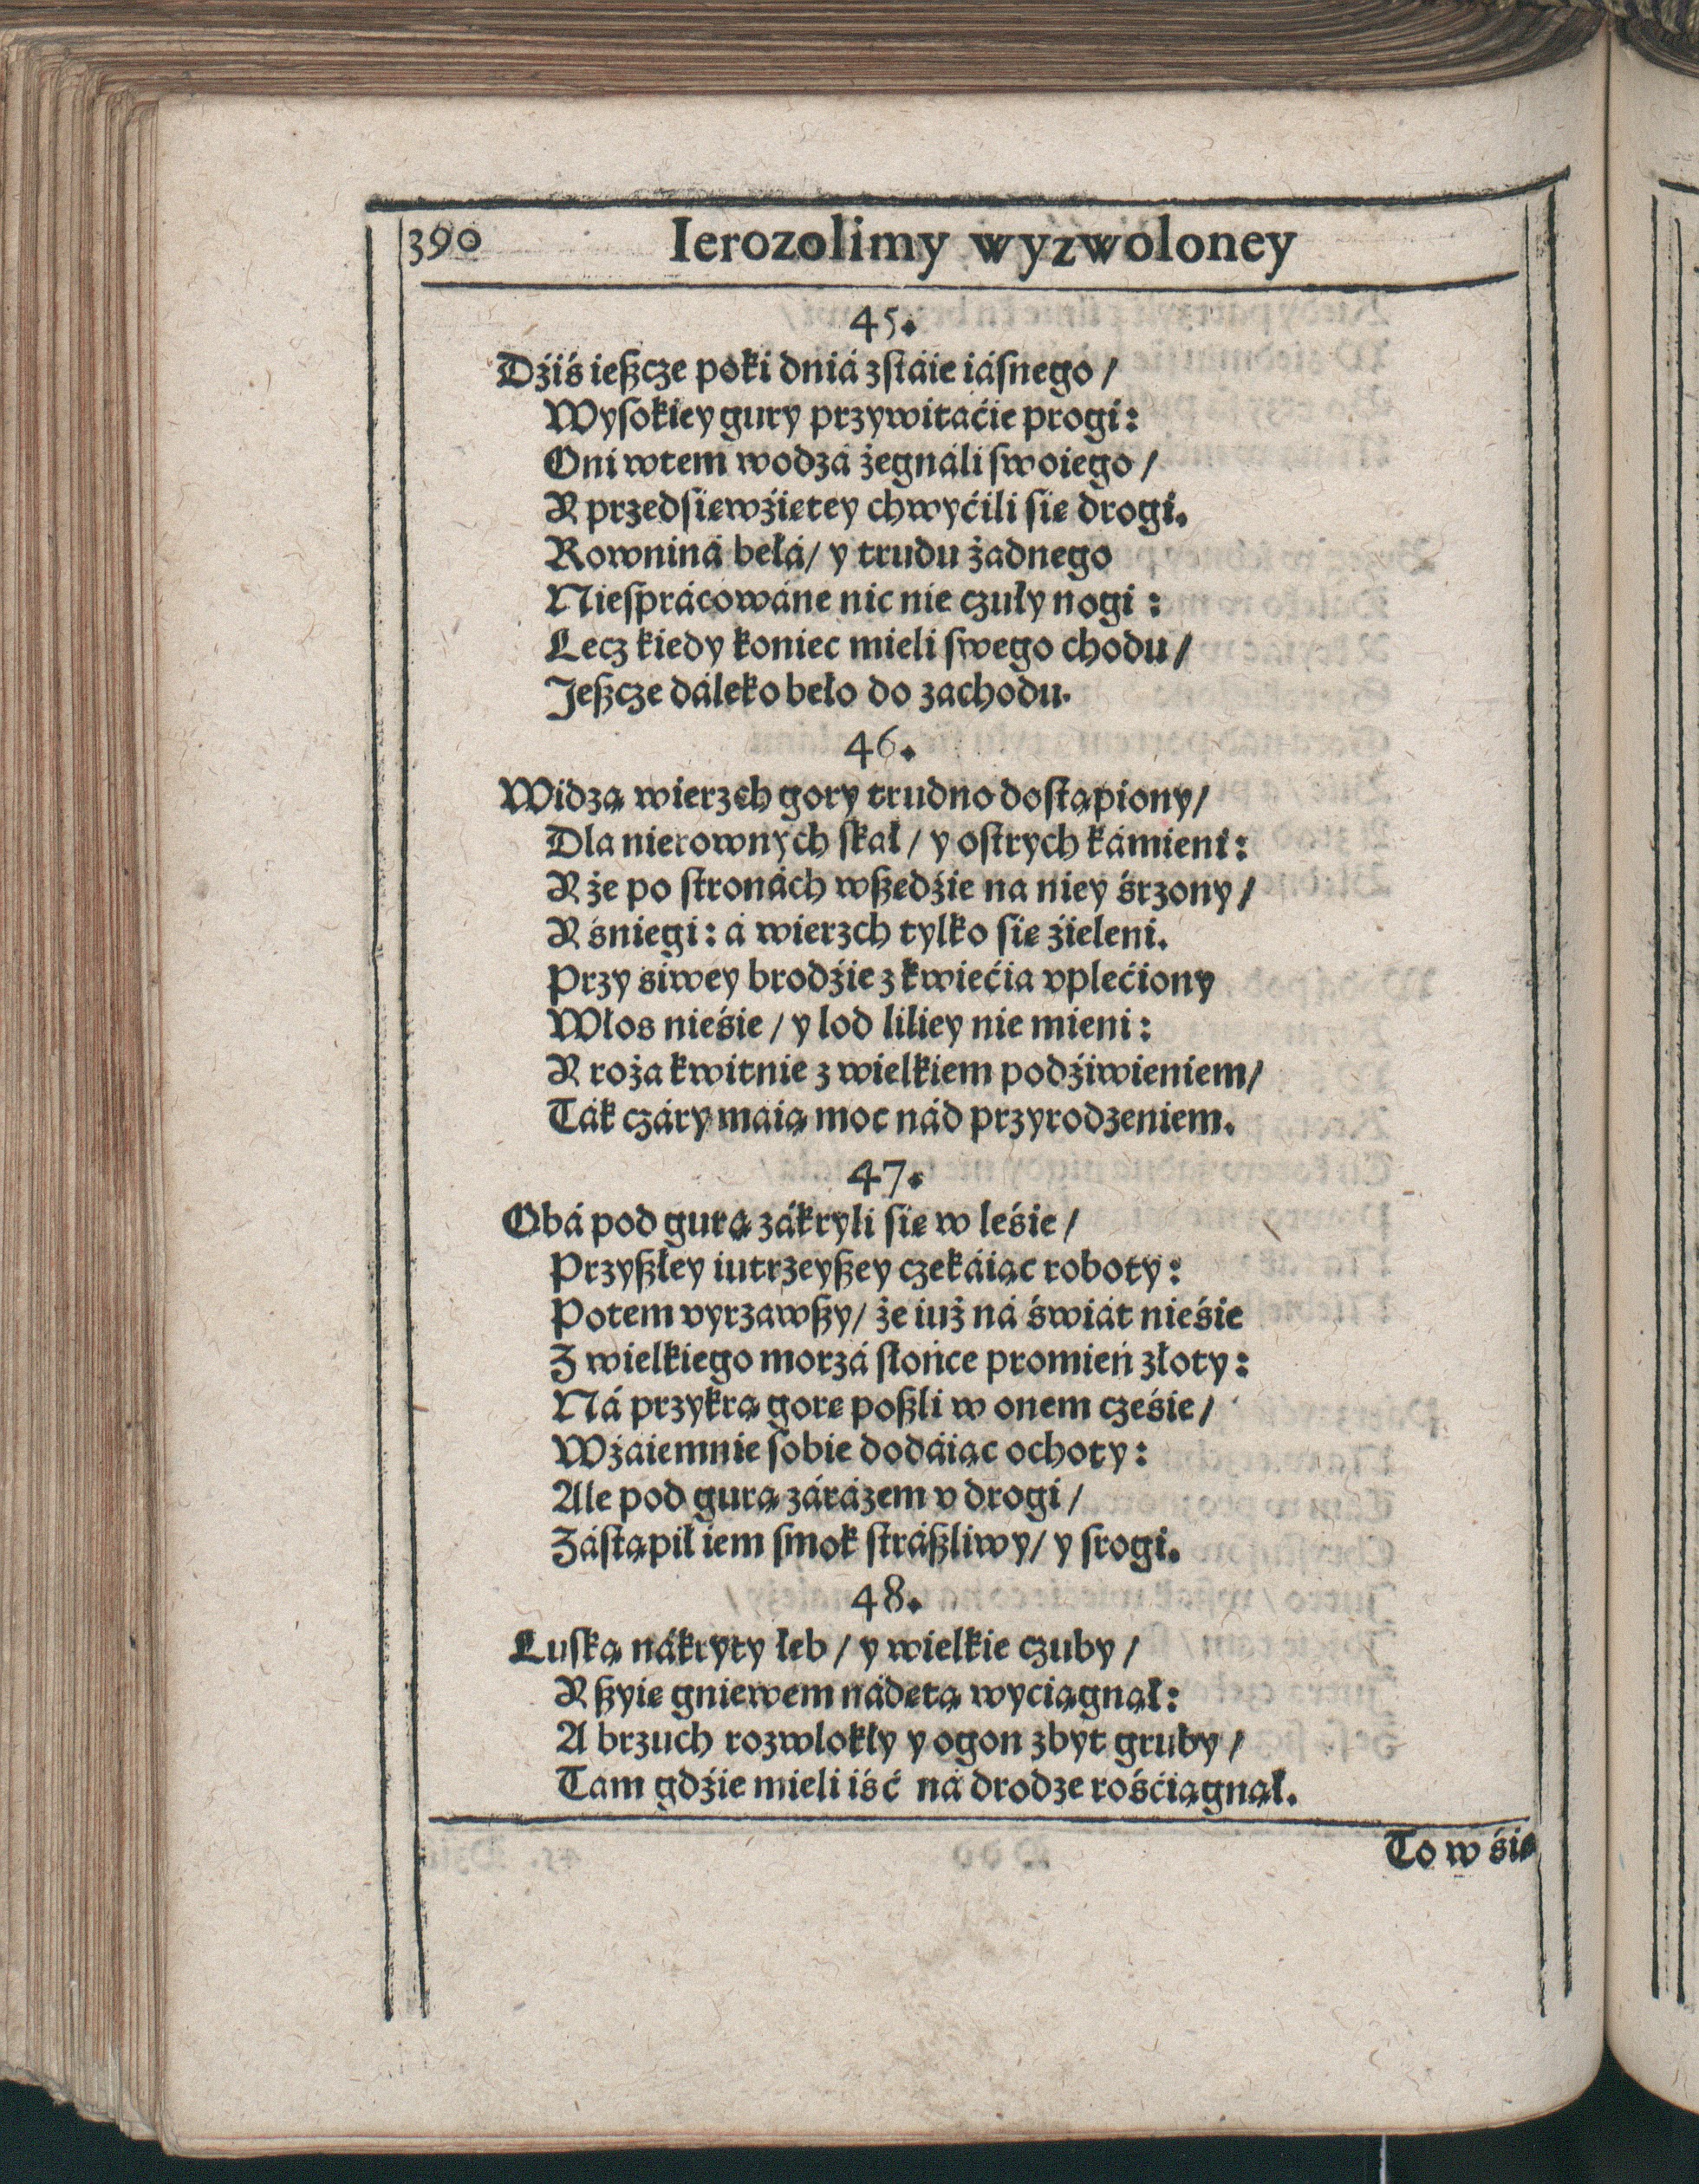 390 Ierozolimy wyzwoloney
45.
Dźiś ieszcze poki dniá zstáie iásnego /
Wysokiey gury przywitaćie progi:
Oni wtem wodzá żegnáli swoiego /
Y przedsięwźiętey chwyćili się drogi.
Rowniná bełá / y trudu żadnego
Niesprácowáne nic nie czuły nogi:
Lecz kiedy koniec mieli swego chodu /
Jeszcze dáleko beło do zachodu.
46.
Widzą wierzch gory trudno dostąpiony /
Dla nierownych skał / y ostrych kámieni:
Y że po stronách wszędźie na niey śrzony /
Y śniegi: á wierzch tylko się źieleni.
Przy siwey brodźie z kwiećia vplećiony
Włos nieśie / y lod liliey nie mieni:
Y roża kwitnie z wielkiem podźiwieniem /
Ták czáry maią moc nád przyrodzeniem.
47.
Obá pod gurą zákryli się w leśie /
Przyszłey iutrzeyszey czekáiąc roboty:
Potem vyrzawszy / że iuż ná świát nieśie
Z wielkiego morzá słońce promień złoty:
Ná przykrą gorę poszli w onem cześie /
Wźaiemnie sobie dodáiąc ochoty:
Ale pod gurą zárázem v drogi /
Zástąpił iem smok strászliwy / y srogi.
48.
Luską nákryty łeb / y wielkie czuby /
Y szyię gniewem nádętą wyciągnął:
A brzuch rozwlokły y ogon zbyt gruby /
Tam gdźie mieli iść ná drodze rośćiągnął.
To w śię